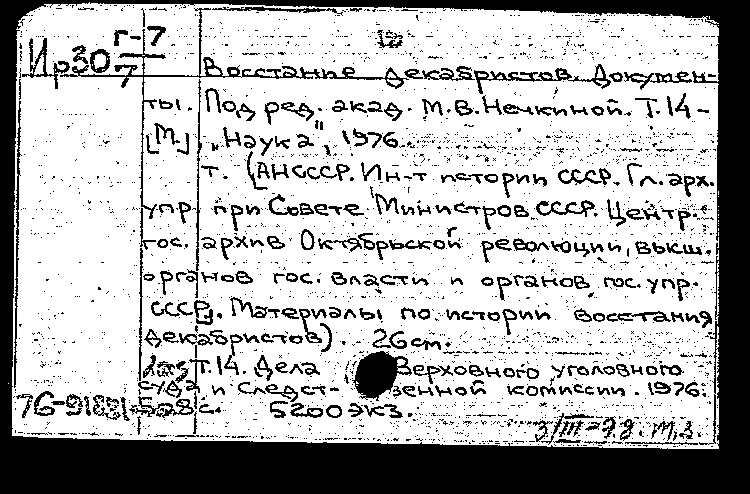 г-7
Ир30 7
Восстание декабристов. Докумен-
ты. Под ред. акад. М.В.Нечкиной. Т.14-
[М.], „Наука", 1976.
т. (АН СССР. Ин-т истории СССР. Гл. арх.
упр. при Совете Министров СССР. Центр.
гос. архив Октябрьской революции, высш.
органов гос. власти и органов гос. упр.
СССР]. Материалы по истории восстания
декабристов). 26 см.
Т.14. Дела Верховного уголовного
суда и следст- венной комиссии. 1976.
508 с. 5200 экз.
3/III-78. М.З.